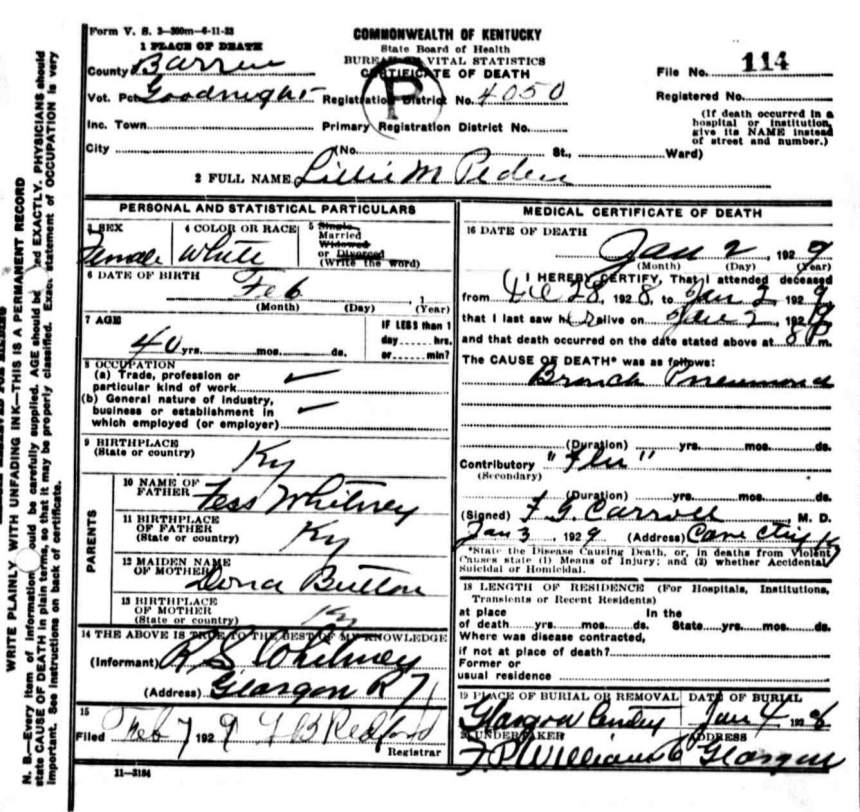 Form V. S. 3—300m—6-11-23
COMMONWEALTH OF KENTUCKY
State Board of Health
BUREAU OF VITAL STATISTICS
CERTIFICATE OF DEATH
1 PLACE OF DEATH
County Barren
File No. 114
Vot. Pct. Goodnight
Registration District No. 4050
Registered No.
P
Inc. Town
Primary Registration District No.
(If death occurred in a hospital or institution, give its NAME instead of street and number.)
City
(No. St., Ward)
2 FULL NAME Lillie M Peden
PERSONAL AND STATISTICAL PARTICULARS
3 SEX
Female
4 COLOR OR RACE
White
5 Single
Married
Widowed
or Divorced
(Write the word)
6 DATE OF BIRTH
Feb , 1
(Month) (Day) (Year)
7 AGE
40 yrs. mos. ds.
IF LESS than 1
day hrs.
or min?
8 OCCUPATION
(a) Trade, profession or
particular kind of work ✓
(b) General nature of industry,
business or establishment in
which employed (or employer) ✓
9 BIRTHPLACE
(State or country)
Ky
PARENTS
10 NAME OF
FATHER
Tess Whitney
11 BIRTHPLACE
OF FATHER
(State or country)
Ky
12 MAIDEN NAME
OF MOTHER
Dona Button
13 BIRTHPLACE
OF MOTHER
(State or country)
Ky
14 THE ABOVE IS TRUE TO THE BEST OF MY KNOWLEDGE
(Informant) Whitney
(Address) Glasgow R 7
15
Filed Feb 7 1929 Redford
Registrar
11—3184
MEDICAL CERTIFICATE OF DEATH
16 DATE OF DEATH
Jan 2, 1929
(Month) (Day) (Year)
I HEREBY CERTIFY, That I attended deceased
from Dec 28, 1928, to Jan 2, 1929
that I last saw her alive on Jan 2, 1929
and that death occurred on the date stated above at 8 P m.
The CAUSE OF DEATH* was as follows:
Bronch Pneumonia
(Duration) yrs. mos. ds.
Contributory "Flu"
(Secondary)
(Duration) yrs. mos. ds.
(Signed) F G Carroll M. D.
Jan 3, 1929 (Address) Cave City Ky
*State the Disease Causing Death, or, in deaths from Violent
Causes state (1) Means of Injury; and (2) whether Accidental,
Suicidal or Homicidal.
18 LENGTH OF RESIDENCE (For Hospitals, Institutions,
Transients or Recent Residents)
at place In the
of death yrs. mos. ds. State yrs. mos. ds.
Where was disease contracted,
if not at place of death?
Former or
usual residence
19 PLACE OF BURIAL OR REMOVAL
DATE OF BURIAL
Glasgow Jan 4 192
20 UNDERTAKER
ADDRESS
Glasgow
N. B.—Every item of information should be carefully supplied. AGE should be stated EXACTLY. PHYSICIANS should
state CAUSE OF DEATH in plain terms, so that it may be properly classified. Exact statement of OCCUPATION is very
important. See instructions on back of certificate.
WRITE PLAINLY WITH UNFADING INK—THIS IS A PERMANENT RECORD